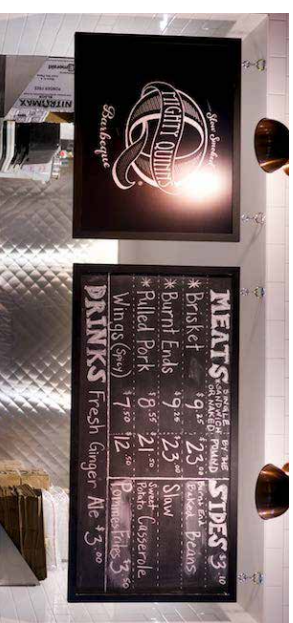 Slow Smoked
MIGHTY QUINN'S
Barbeque
MEATS SINGLE SANDWICH OR NAKED BY THE POUND
* Brisket $9.25 $23.00
* Burnt Ends $9.25 $23.00
* Pulled Pork $8.55 $21.50
Wings (Spicy) $7.50 $12.50
SIDES $3.10
Burnt End Baked Beans
Slaw
Sweet Potato Casserole
Fries $3.50
DRINKS Fresh Ginger Ale $3.00
NITRIMAX